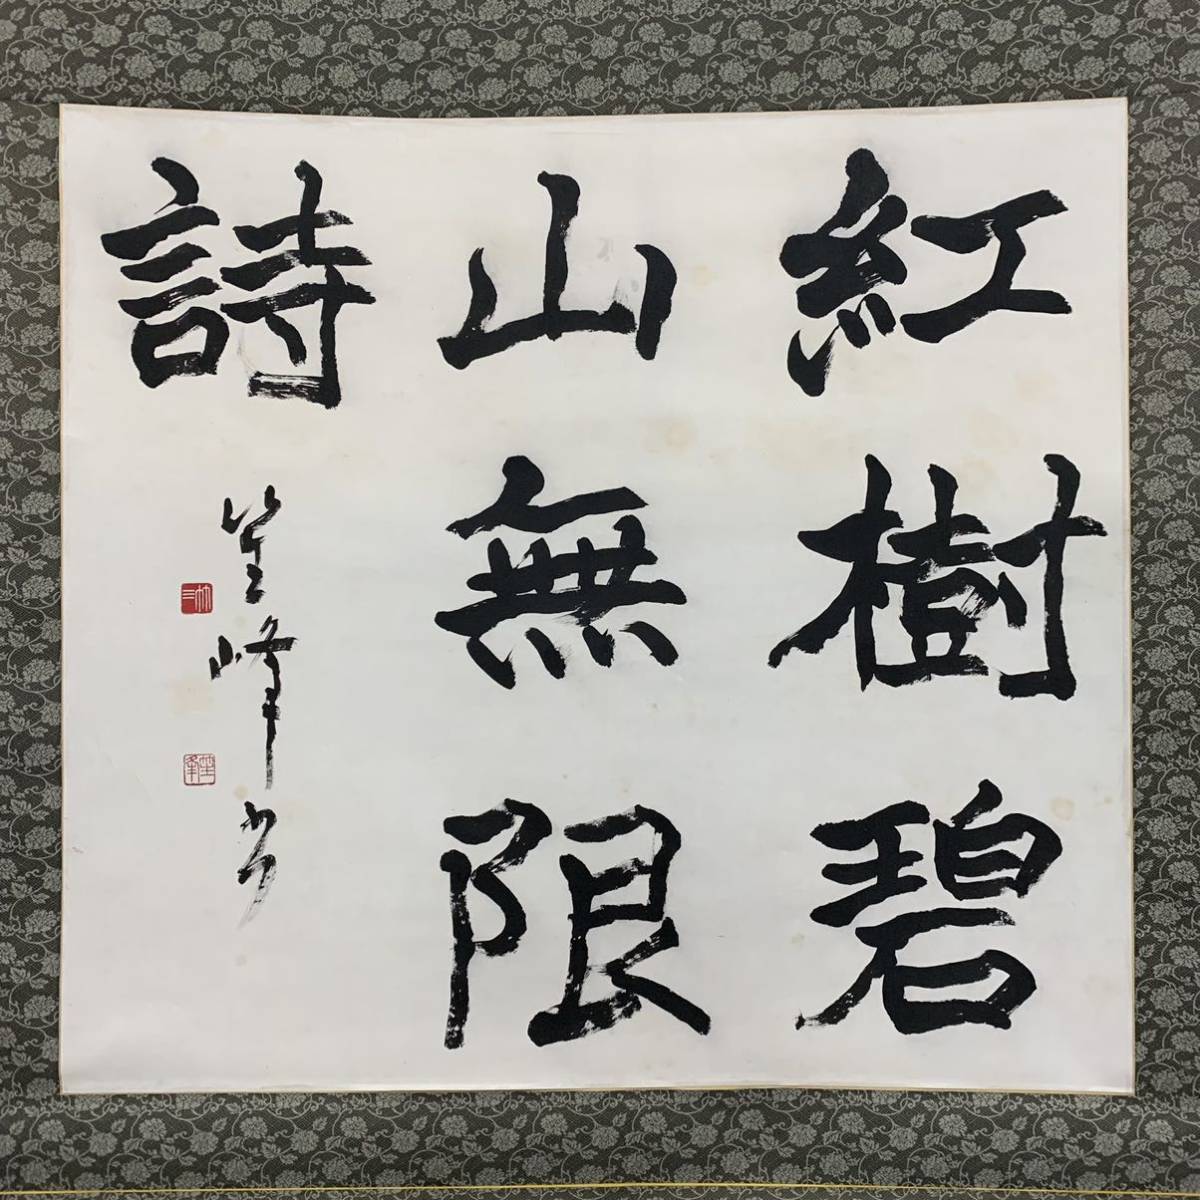 紅樹碧
山無限
詩
笙峰書